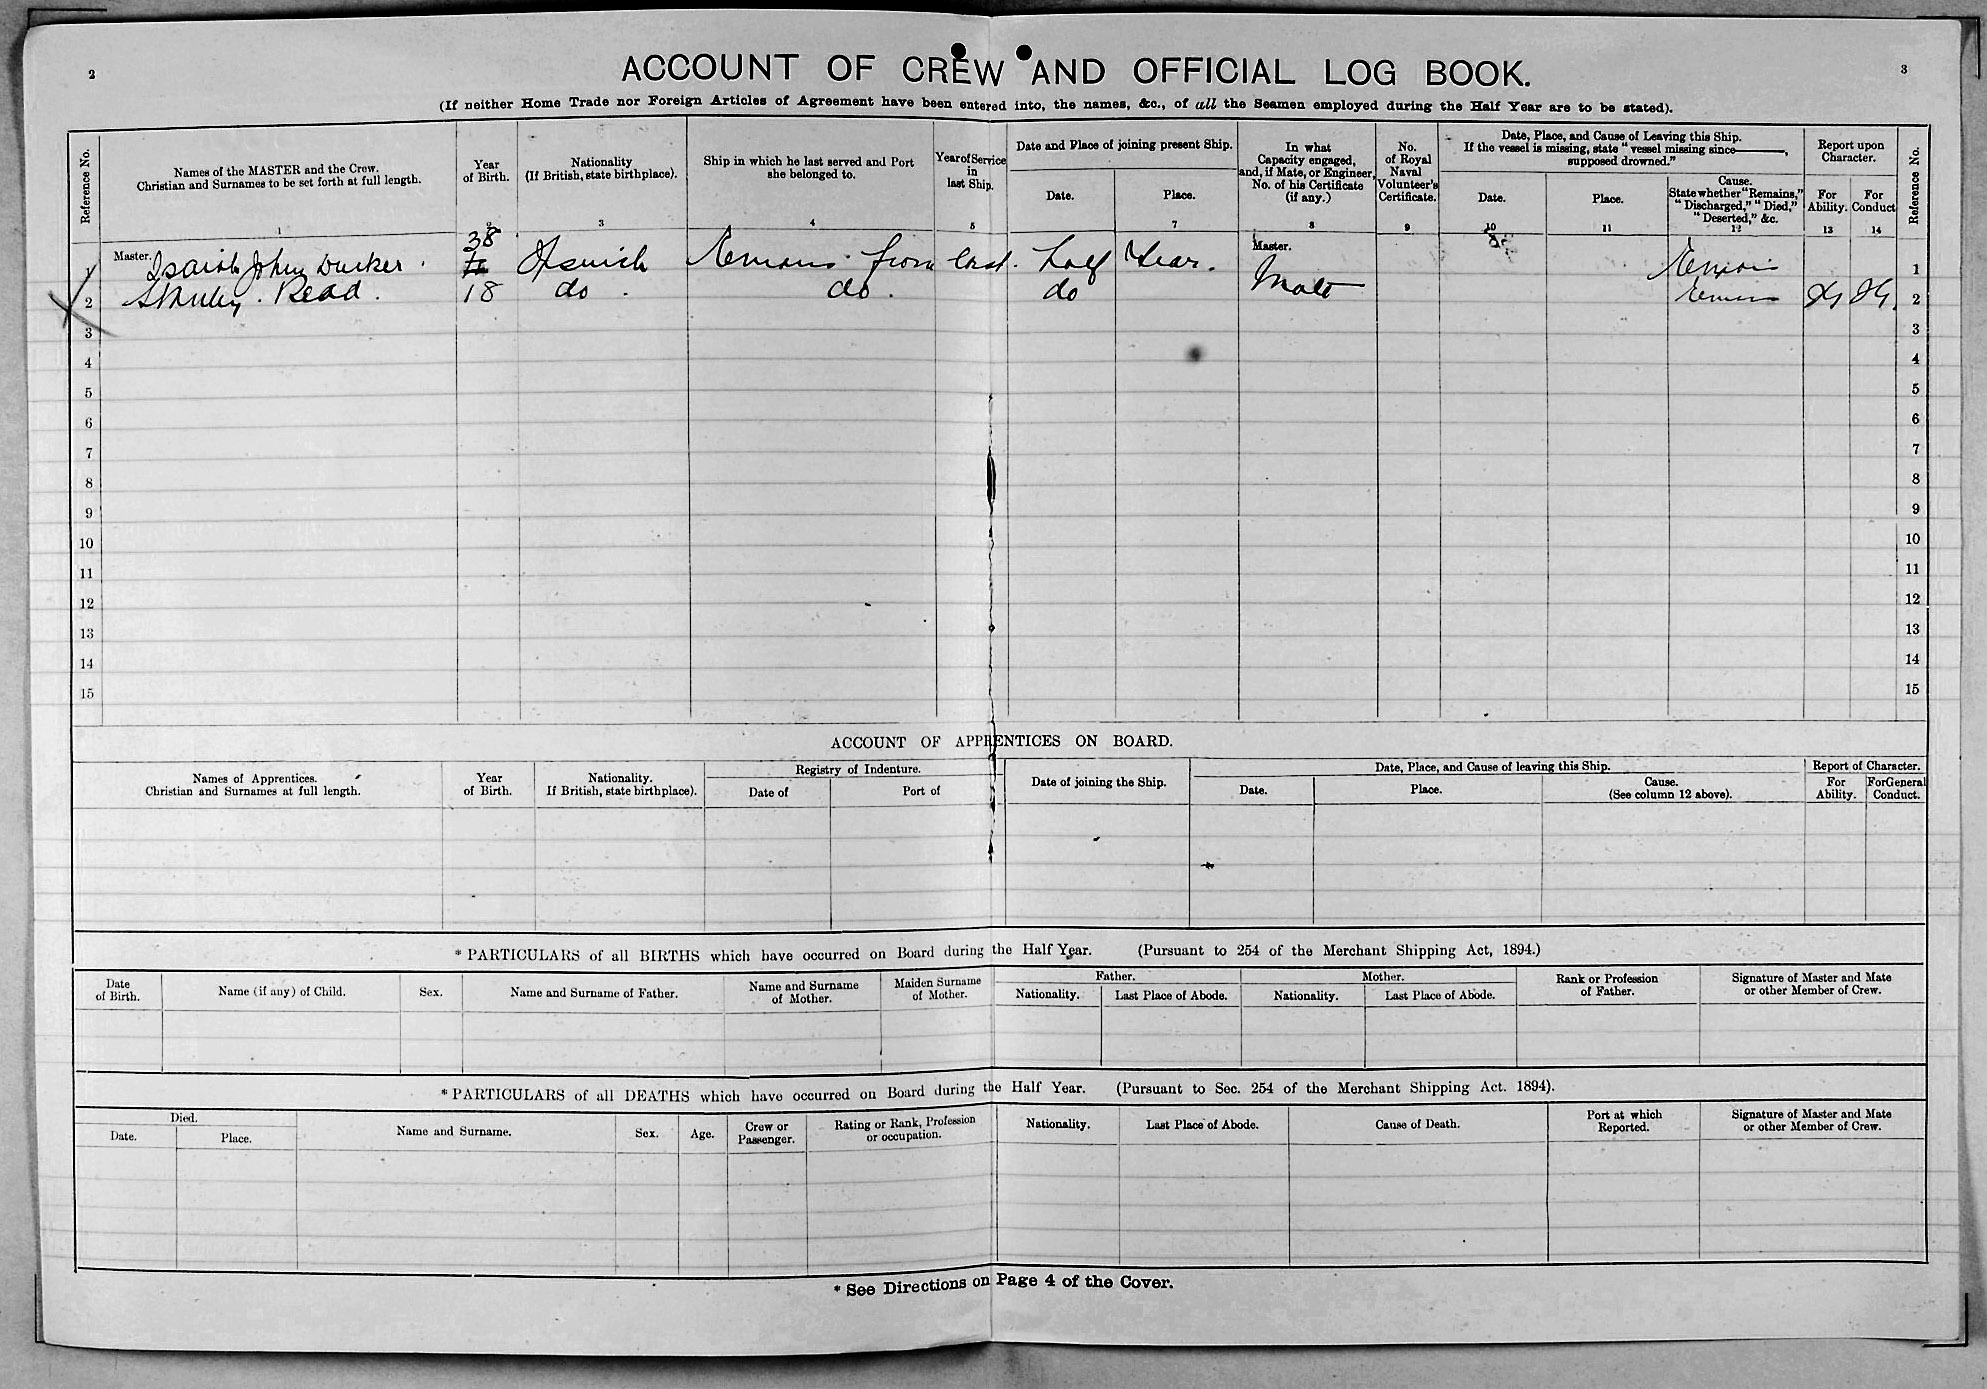 2
ACCOUNT OF CREW AND OFFICIAL LOG BOOK.
3
(If neither Home Trade nor Foreign Articles of Agreement have been entered into, the names, &c., of all the Seamen employed during the Half Year are to be stated).
Reference No.
Names of the MASTER and the Crew.
Christian and Surnames to be set forth at full length.
1
Year
of Birth.
2
Nationality
(If British, state birthplace).
3
Ship in which he last served and Port
she belonged to.
4
Year of Service
in
last Ship.
5
Date and Place of joining present Ship.
Date.
Place.
7
In what
Capacity engaged,
and, if Mate, or Engineer,
No. of his Certificate
(if any.)
8
No.
of Royal
Naval
Volunteer's
Certificate.
9
Date, Place, and Cause of Leaving this Ship.
If the vessel is missing, state "vessel missing since———,
supposed drowned."
Date.
10
Place.
11
Cause.
State whether "Remains,"
"Discharged," "Died,"
"Deserted," &c.
12
Report upon
Character.
For
Ability.
13
For
Conduct
14
Reference No.
1 Master. Isaiah John Durker. 38 Ipswich Remains from last Half Year. Master. Remain 1
2 Stanley. Read. 18 do. do. do Mate Remain VG VG. 2
3 3
4 4
5 5
6 6
7 7
8 8
9 9
10 10
11 11
12 12
13 13
14 14
15 15
ACCOUNT OF APPRENTICES ON BOARD.
Names of Apprentices.
Christian and Surnames at full length.
Year
of Birth.
Nationality.
If British, state birthplace).
Registry of Indenture.
Date of
Port of
Date of joining the Ship.
Date, Place, and Cause of leaving this Ship.
Date.
Place.
Cause.
(See column 12 above).
Report of Character.
For
Ability.
For General
Conduct.
* PARTICULARS of all BIRTHS which have occurred on Board during the Half Year. (Pursuant to 254 of the Merchant Shipping Act, 1894.)
Date
of Birth.
Name (if any) of Child.
Sex.
Name and Surname of Father.
Name and Surname
of Mother.
Maiden Surname
of Mother.
Father.
Nationality.
Last Place of Abode.
Mother.
Nationality.
Last Place of Abode.
Rank or Profession
of Father.
Signature of Master and Mate
or other Member of Crew.
* PARTICULARS of all DEATHS which have occurred on Board during the Half Year. (Pursuant to Sec. 254 of the Merchant Shipping Act. 1894).
Died.
Date.
Place.
Name and Surname.
Sex.
Age.
Crew or
Passenger.
Rating or Rank, Profession
or occupation.
Nationality.
Last Place of Abode.
Cause of Death.
Port at which
Reported.
Signature of Master and Mate
or other Member of Crew.
* See Directions on Page 4 of the Cover.